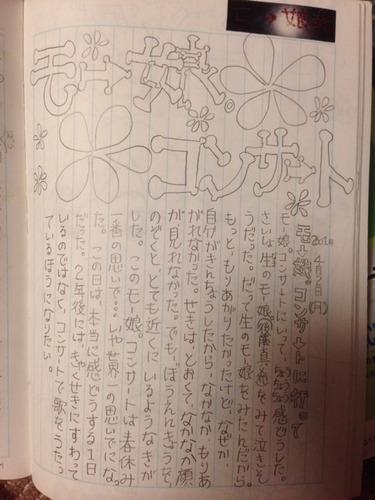 モー娘。
コンサート
モー娘。コンサートに行って
2001年4月2日(月)
モー娘。コンサートにいって、ちょうちょう感どうした。
さいしょは生のモー娘(後藤真希)をみて泣きそ
うだった。だって生のモー娘をみたんだから。
もっと、もりあがりたかったけど、なぜか、
自分がきんちょうしたから、なかなか、もりあ
がれなかった。せきはとおくて、なかなか顔
が見れなかった。でも、ぼうえんきょうで、
のぞくと、とても近くにいるようなきが
した。このモー娘。コンサートは春休み
一番の思いで…いや世界一の思いでになっ
た。この日は、本当に感どうする1日
だった。2年後には、きゃくせきにすわって
いるのではなく、コンサートで歌をうたっ
ているほうになりたい。